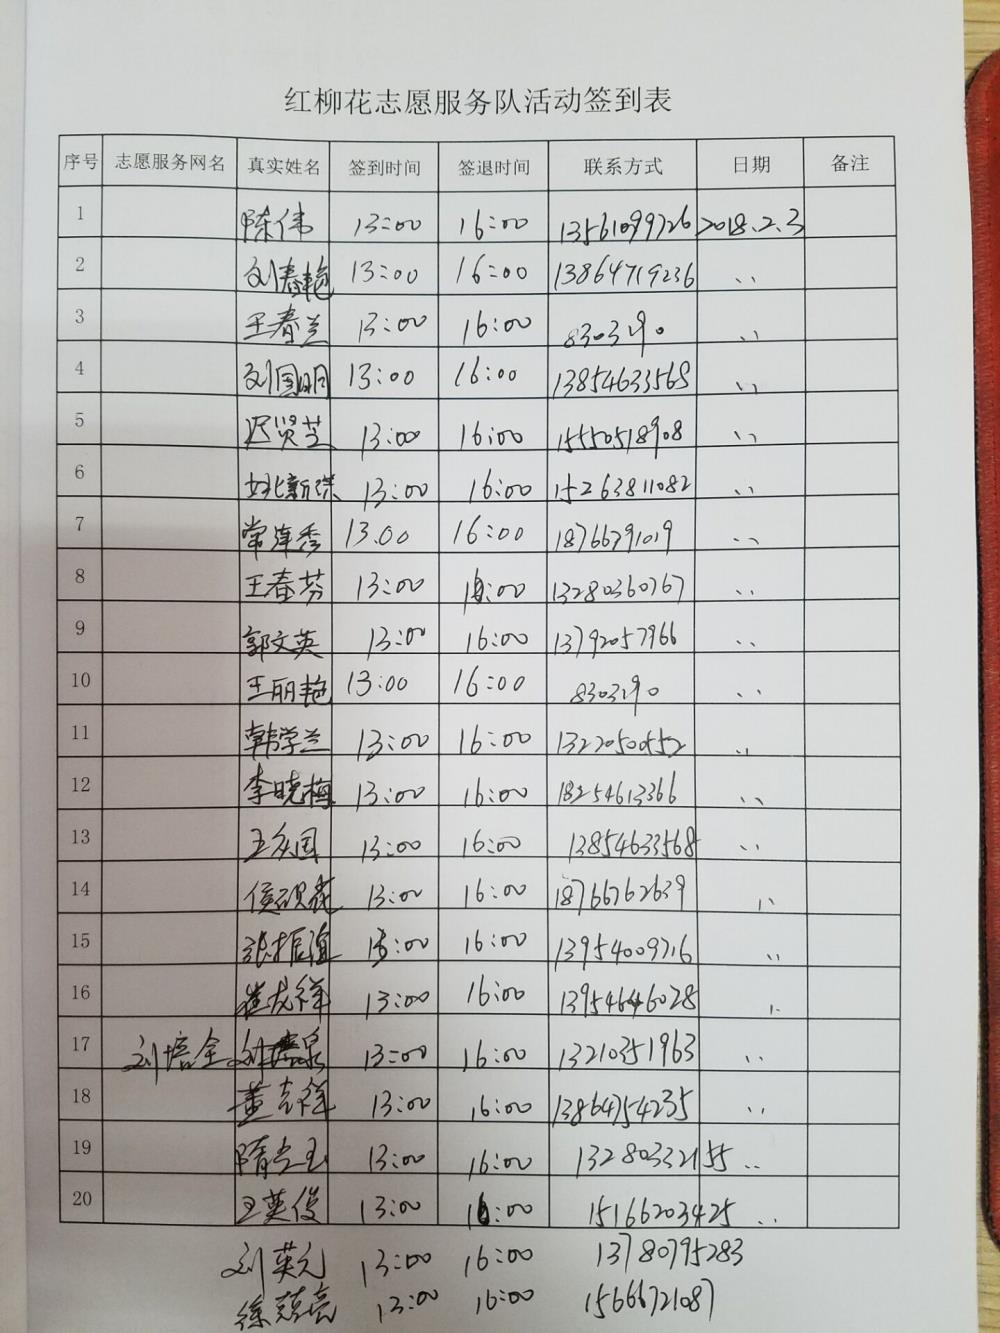 红柳花志愿服务队活动签到表
序号 志愿服务网名 真实姓名 签到时间 签退时间 联系方式 日期 备注
1 陈伟 13:00 16:00 13561099726 2018.2.3
2 刘春艳 13:00 16:00 13864719236 、、
3 王春兰 13:00 16:00 8303190 、、
4 刘国明 13:00 16:00 13854633568 、、
5 迟贤芝 13:00 16:00 15550518908 、、
6 姚新珠 13:00 16:00 15263811082 、、
7 常连秀 13.00 16:00 18766791019 、、
8 王春芬 13:00 16:00 13280360767 、、
9 郭文英 13:00 16:00 13792057966 、、
10 王丽艳 13:00 16:00 8303190 、、
11 韩学兰 13:00 16:00 、、
12 李晓梅 13:00 16:00 18254613366 、、
13 王庆国 13:00 16:00 13854633568 、、
14 侯砚花 13:00 16:00 18766762639 、、
15 张振 13:00 16:00 13954009716 、、
16 崔龙祥 13:00 16:00 13954646028 、、
17 刘培全 13:00 16:00 13210351963 、、
18 黄志祥 13:00 16:00 13864754235 、、
19 隋 玉 13:00 16:00 13280332155 、、
20 王英俊 13:00 16:00 15166203425 、、
刘英元 13:00 16:00 13780795283
徐 亮 13:00 16:00 15666721087